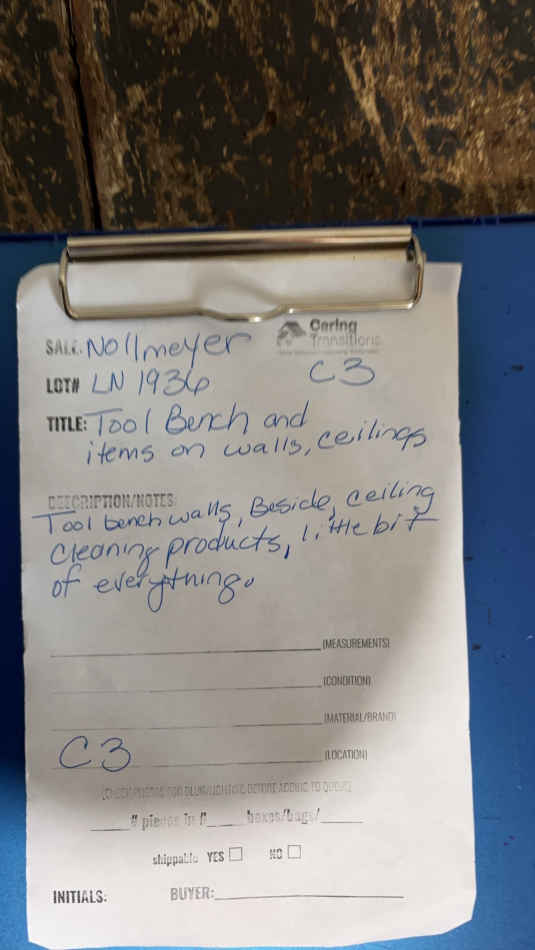 Caring
Transitions
SALE: Nollmeyer
LOT# LN 1936 C3
TITLE: Tool Bench and
items on walls, ceilings
DESCRIPTION/NOTES:
Tool bench walls, Beside, ceiling
cleaning products, little bit
of everything.
(MEASUREMENTS)
(CONDITION)
(MATERIAL/BRAND)
C3 (LOCATION)
(CHECK PHOTOS FOR BLUR/LIGHTING BEFORE ADDING TO QUEUE)
# pieces in # boxes/bags/
shippable YES NO
INITIALS: BUYER: